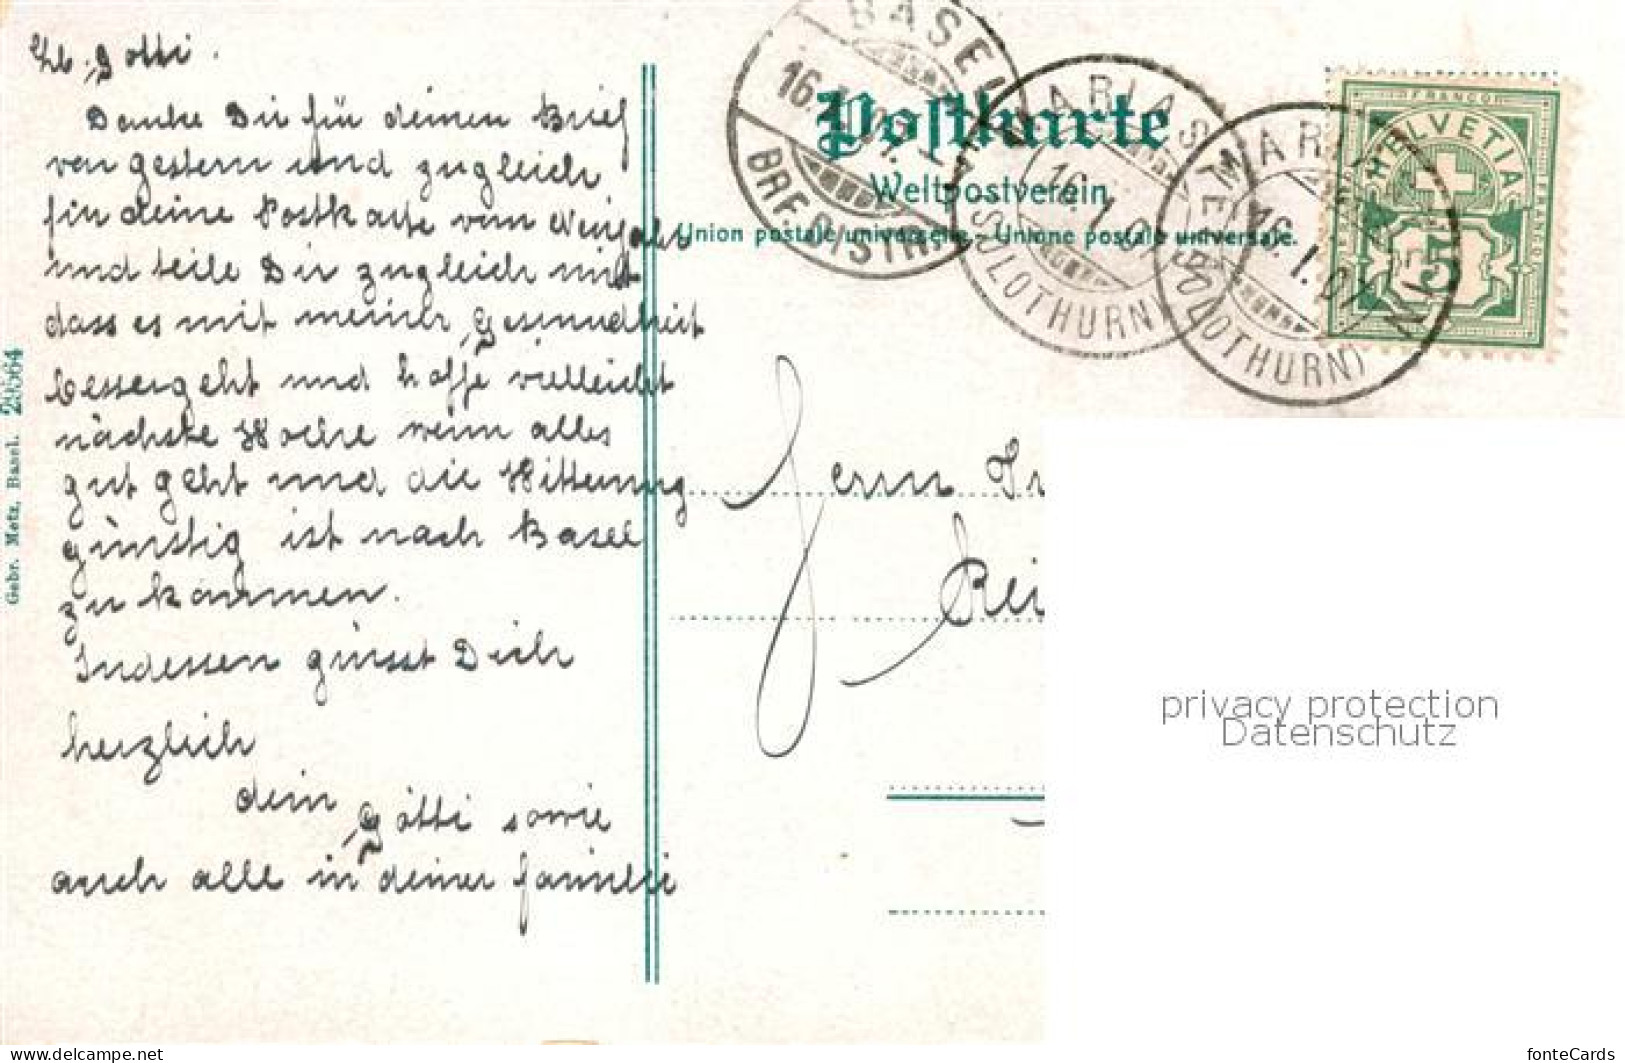 Lb. Götti.
Danke Dir für deinen Brief
von gestern und zugleich
für deine Postkarte vom Neujahr
und teile Dir zugleich mit
dass es mit meiner Gesundheit
besser geht und hoffe vielleicht
nächste Woche wenn alles
gut geht und die Witterung
günstig ist nach Basel
zu kommen.
Indessen grüsst Dich
herzlich
dein Götti sowie
auch alle in deiner familie
Gebr. Metz, Basel. 29564
Postkarte
Weltpostverein
Union postale universelle - Unione postale universale.
BASEL
16.
BRF. DISTR.
MARIASTEIN
16. I. 07
(SOLOTHURN)
MARIASTEIN
16. I. 07
(SOLOTHURN)
FRANCO
HELVETIA
5
Herrn
privacy protection
Datenschutz
www.delcampe.net
fonteCards